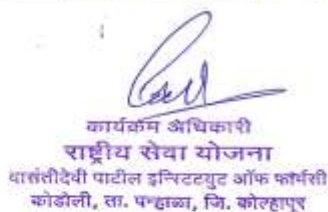 कार्यक्रम अधिकारी
राष्ट्रीय सेवा योजना
वासंतीदेवी पाटील इन्स्टिटयुट ऑफ फार्मसी
कोडोली, ता. पन्हाळा, जि. कोल्हापूर